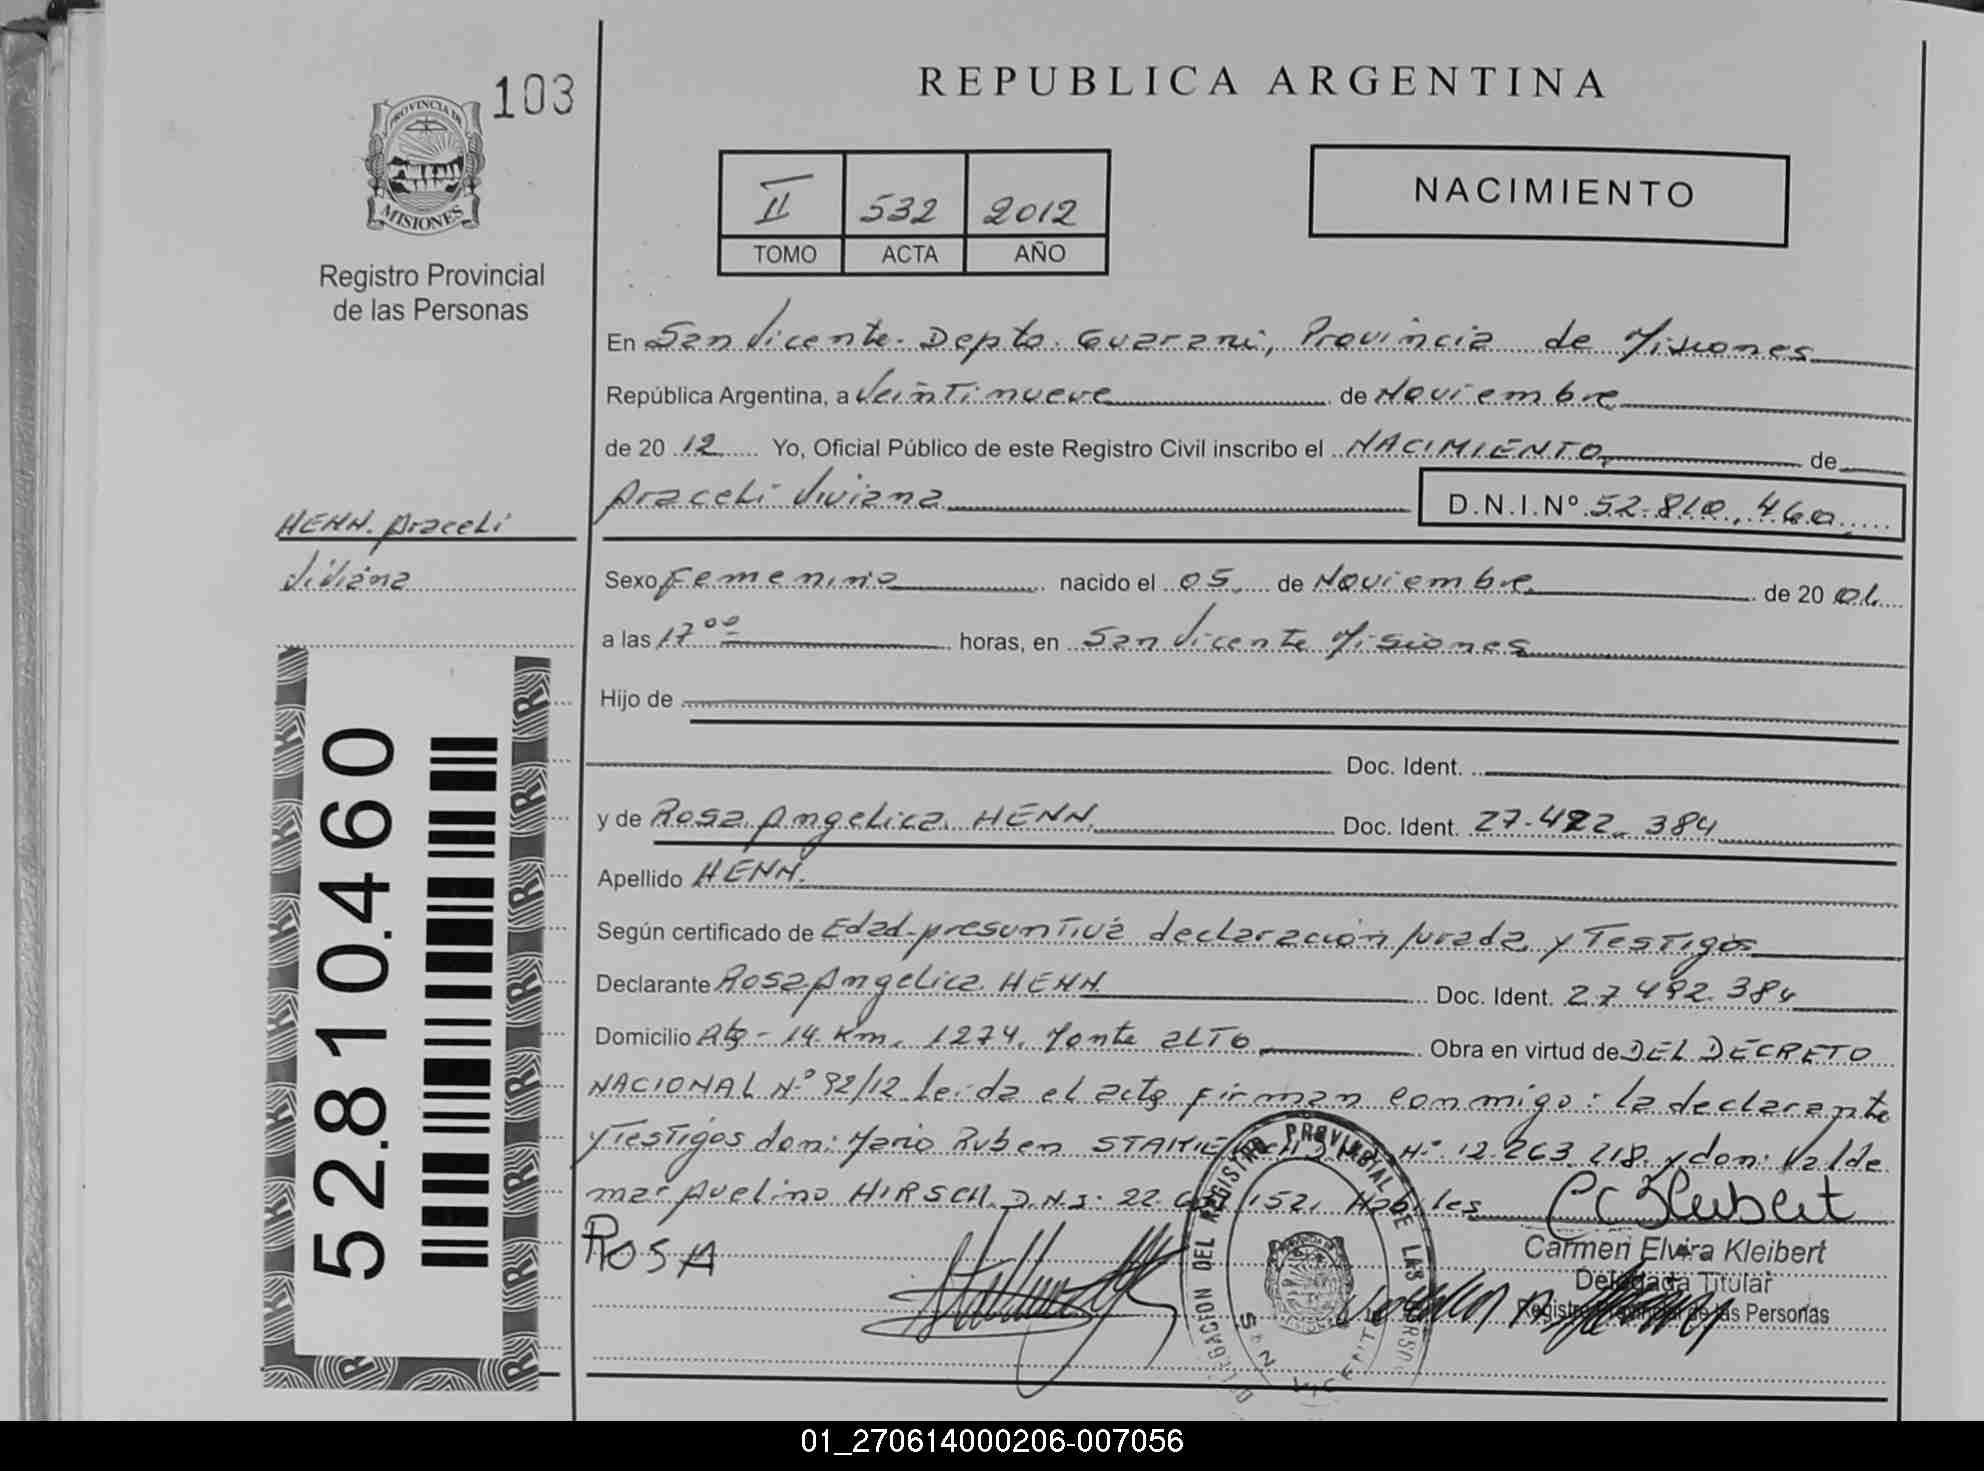 103
PROVINCIA DE
MISIONES
Registro Provincial
de las Personas
REPUBLICA ARGENTINA
II 532 2012
TOMO ACTA AÑO
NACIMIENTO
En San Vicente. Depto. Guarani, Provincia de Misiones
República Argentina, a Veintinueve de Noviembre
de 20 12 Yo, Oficial Público de este Registro Civil inscribo el NACIMIENTO de
Araceli Viviana D.N.I.Nº 52.810.460
HENN. Araceli
Viviana
Sexo Femenino nacido el 05 de Noviembre de 20
a las 17 00 horas, en San Vicente Misiones
Hijo de
Doc. Ident.
y de Rosa Angelica HENN Doc. Ident. 27.492.384
Apellido HENN.
Según certificado de Edad presuntiva declaración jurada y Testigos
Declarante Rosa Angelica HENN Doc. Ident. 27.492.384
Domicilio Km. 1274. Monte alto Obra en virtud de DEL DECRETO
NACIONAL Nº 92/12 Leida el acta firman conmigo: la declarante
y Testigos don: Mario Ruben Nº 12.263.218. y don: Valde
mar Avelino HIRSCH. D.N.I. 22. Habiles
52.810.460
ROSA
C Kleibert
Carmen Elvira Kleibert
Delegada Titular
Registro Provincial de las Personas
DELEGACION DEL REGISTRO PROVINCIAL DE LAS PERSO
SAN VICENTE
01_270614000206-007056